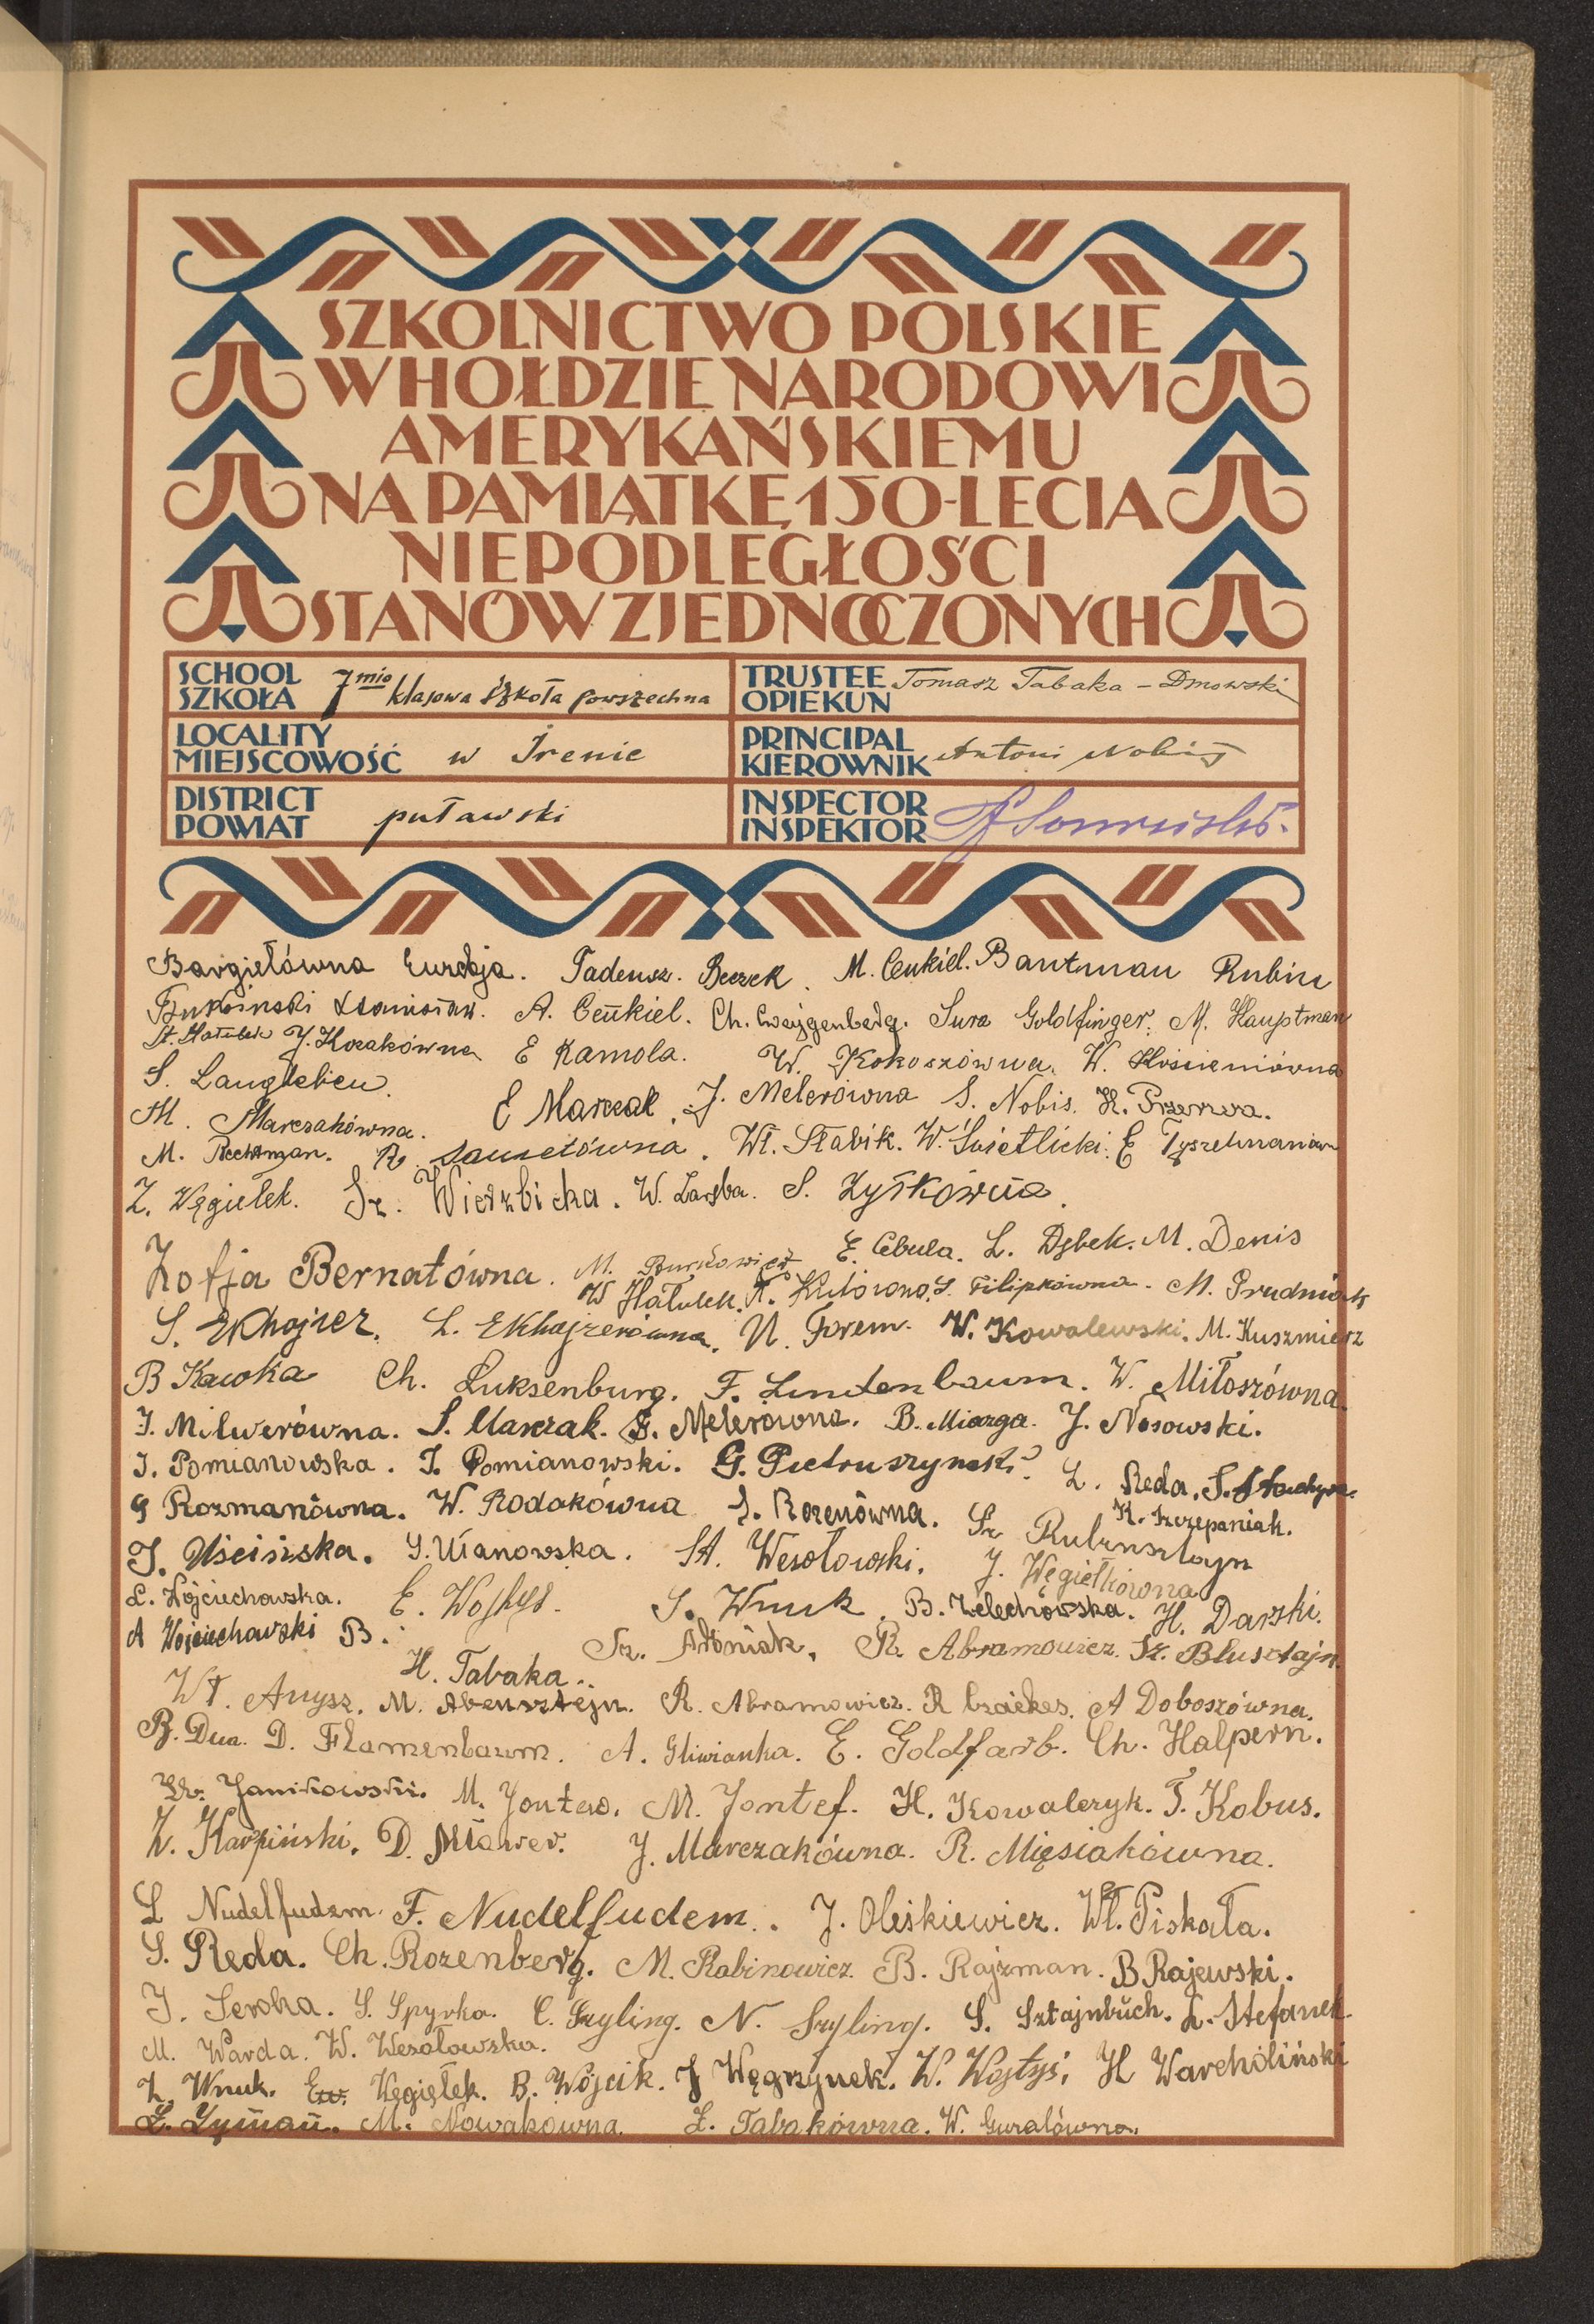 SZKOLNICTWO POLSKIE
W HOŁDZIE NARODOWI
AMERYKAŃSKIEMU
NA PAMIĄTKĘ 150-LECIA
NIEPODLEGŁOŚCI
STANÓW ZJEDNOCZONYCH
SCHOOL SZKOŁA 7mio klasowa Szkoła powszechna
TRUSTEE OPIEKUN Tomasz Tabaka - Dmowski
LOCALITY MIEJSCOWOŚĆ w Irenie
PRINCIPAL KIEROWNIK Antoni Nobis
DISTRICT POWIAT puławski
INSPECTOR INSPEKTOR
Bargiełówna Tadeusz. Beczek. M. Cenkiel. Bautman Rubin
A. Cenkiel. Ch. Cwajgenberg. Sura Goldfinger. M. Hauptman
St. Hałubek J. Kozakówna E Kamola. W. Kokoszówna. W. Kościeniówna
S. Langleben.
M. Marczakówna. E Marczak. J. Melerówna S. Nobis. H. Przerwa.
M. Rechtman. Wł. Słabik. W. Świetlicki. E
Z. Węgiełek. Sz. Wierzbicka. W. Zaręba. S. Zyśkówna.
Zofja Bernatówna. M. Burkowicz E. Cebula. L. Dębek. M. Denis
W Hałubek. S. Filipkówna. M. Prudniak
S. Ekhajzer. L. Ekhajzerówna. N. Forem. W. Kowalewski. M. Kuszmierz
B Kawka Ch. Luksenburg. F. Lindenbaum. W. Miłoszówna.
I. Milwerówna. S. Marczak. G. Melerówna. B. Miazga. J. Nosowski.
I. Pomianowska. I. Pomianowski. G. Pietruszyński. Z. Reda. S.
G Rozmanówna. W. Rodakówna S. Rozenówna. Sz Rubinsztajn K. Szczepaniak.
J. Uścińska. S. Uianowska. St. Wesołowski. J. Węgiełkówna
L. Wójciechowska. E. Wojtyś. S. Wnuk. B. Żelechowska. H. Darski.
A Wojciechowski B. Sz. Abramiak. R. Abramowicz. Sz. Blusztajn.
H. Tabaka.
Wł. Anysz. M. Abensztejn. R. Abramowicz. R A Doboszówna.
B. Dua. D. Flamenbaum. A. Gliwianka. E. Goldfarb. Ch. Halpern.
Janikowski. M. Jontew. M. Jontef. H. Kowalczyk. T. Kobus.
Z. Karpiński. D. Mławer. J. Marczakówna. R. Mięsiakówna.
L Nudelfudem. F. Nudelfudem. J. Oleśkiewicz. Wł. Piskała.
S. Reda. Ch. Rozenberg. M. Rabinowicz. B. Rajzman. B Rajewski.
J. Seroka. S. Spyrka. C. Szyling. N. Szyling. S. Sztajnbuch. L. Stefanek.
M. Warda. W. Wesołowska.
Z. Wnuk. Ew. Węgiełek. B. Wójcik. J Węgrzynek. W. Wojtyś. H Warcholiński
Z. Zyman. M. Nowakówna. Z. Tabakówna. W. Guralówna.